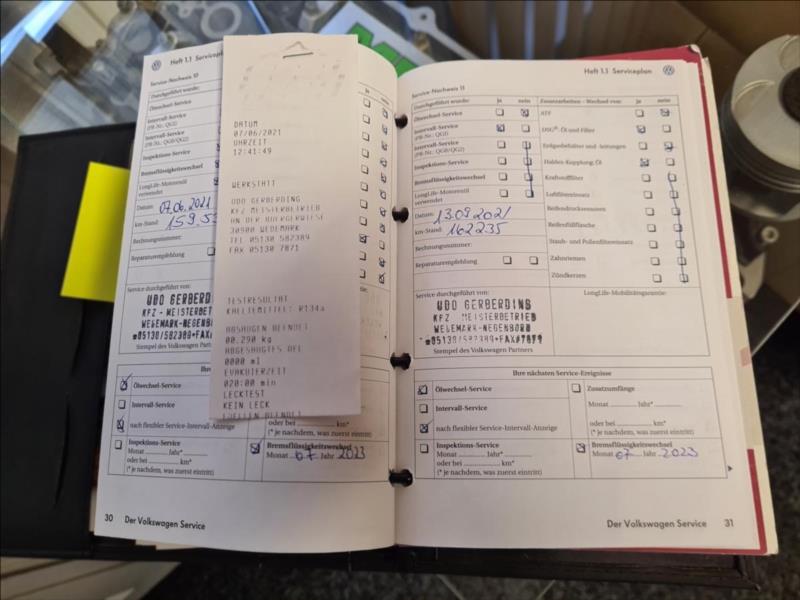 Heft 1.1 Serviceplan
Service-Nachweis 10
Durchgeführt wurde:
Ölwechsel-Service
Intervall-Service
(PR-Nr.: QG1)
Intervall-Service
(PR-Nr.: QG0/QG2)
Inspektions-Service
Bremsflüssigkeitswechsel
LongLife-Motorenöl
verwendet
Datum: 07.06.2021
km-Stand:
Rechnungsnummer:
Reparaturempfehlung
Service durchgeführt von:
UDO GERBERDING
KFZ - MEISTERBETRIEB
WEDEMARK-NEGENBORN
Stempel des Volkswagen Partners
Ölwechsel-Service
Intervall-Service
nach flexibler Service-Intervall-Anzeige
Inspektions-Service
Monat Jahr*
oder bei km*
(* je nachdem, was zuerst eintritt)
oder bei km*
(* je nachdem, was zuerst eintritt)
Bremsflüssigkeitswechsel
Monat 07 Jahr 2023
30 Der Volkswagen Service
DATUM
07/06/2021
UHRZEIT
12:41:49
WERKSTATT
UDO GERBERDING
KFZ MEISTERBETRIEB
AN DER BUERGERWIESE
30900 WEDEMARK
TEL 05130 582389
FAX 05130 7871
TESTRESULTAT
KAELTEMITTEL: R134a
ABSAUGEN BEENDET
00.290 kg
ABGESAUGTES OEL
0000 ml
EVAKUIERZEIT
020:00 min
LECKTEST
KEIN LECK
Heft 1.1 Serviceplan
Service-Nachweis 11
Durchgeführt wurde: ja nein
Ölwechsel-Service
Intervall-Service
(PR-Nr.: QG1)
Intervall-Service
(PR-Nr.: QG0/QG2)
Inspektions-Service
Bremsflüssigkeitswechsel
LongLife-Motorenöl
verwendet
Datum: 13.09.2021
km-Stand: 162235
Rechnungsnummer:
Reparaturempfehlung
Zusatzarbeiten - Wechsel von: ja nein
ATF
DSG®-Öl und Filter
Erdgasbehälter und -leitungen
Haldex-Kupplung: Öl
Kraftstofffilter
Luftfiltereinsatz
Reifendruckmessung
Reifenfüllflasche
Staub- und Pollenfiltereinsatz
Zahnriemen
Zündkerzen
Service durchgeführt von:
UDO GERBERDING
KFZ - MEISTERBETRIEB
WEDEMARK-NEGENBORN
Stempel des Volkswagen Partners
LongLife-Mobilitätsgarantie:
Ihre nächsten Service-Ereignisse
Ölwechsel-Service
Intervall-Service
nach flexibler Service-Intervall-Anzeige
Inspektions-Service
Monat Jahr*
oder bei km*
(* je nachdem, was zuerst eintritt)
Zusatzumfänge
Monat Jahr*
oder bei km*
(* je nachdem, was zuerst eintritt)
Bremsflüssigkeitswechsel
Monat 07 Jahr 2023
Der Volkswagen Service 31